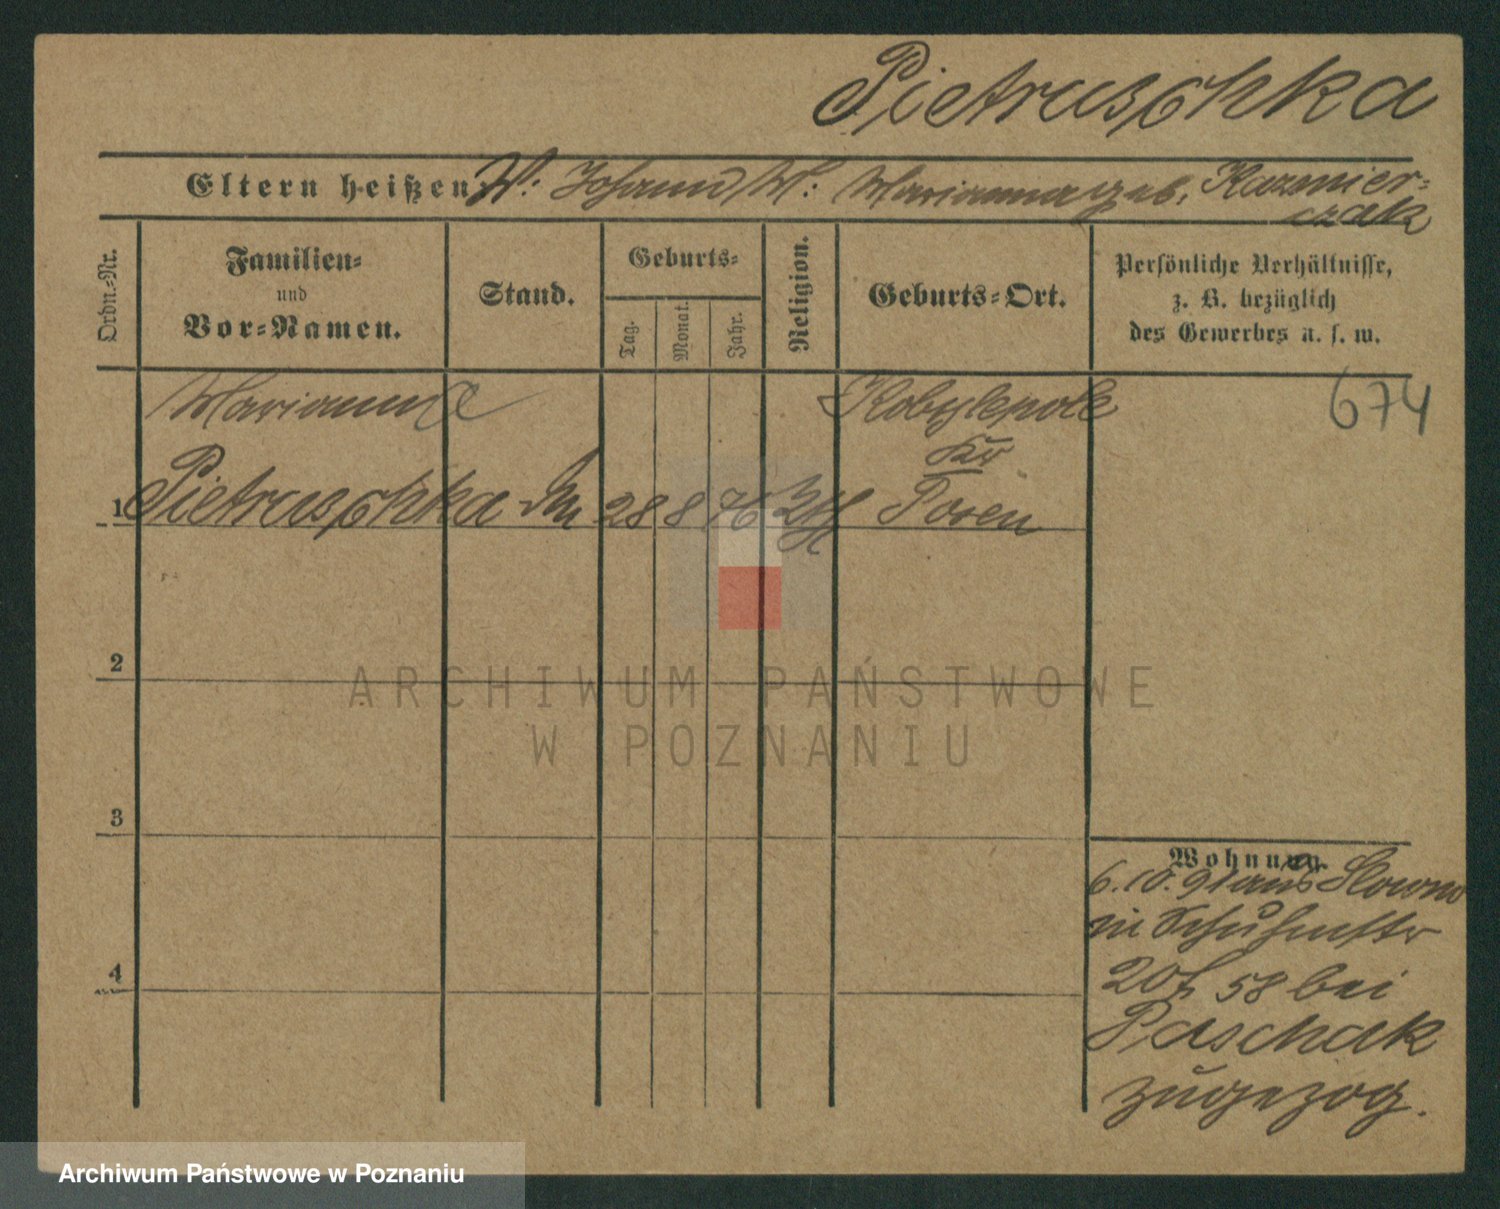 Pietruschka
Eltern heißen: V: Johann M: Marianna geb. Kazmier=
czak
Ordn.-Nr.
Familien=
und
Vor=Namen.
Stand.
Geburts=
Tag.
Monat.
Jahr.
Religion.
Geburts=Ort.
Persönliche Verhältnisse,
z. B. bezüglich
des Gewerbes u. s. w.
674
Marianna
Kobylepole
Kr
1 Pietruschka 28 8 76 Posen
2
3
4
Wohnung.
6.10.91 aus
in Schuhmstr
20 58 bei
Paschak
zugezog.
ARCHIWUM PAŃSTWOWE
W POZNANIU
Archiwum Państwowe w Poznaniu